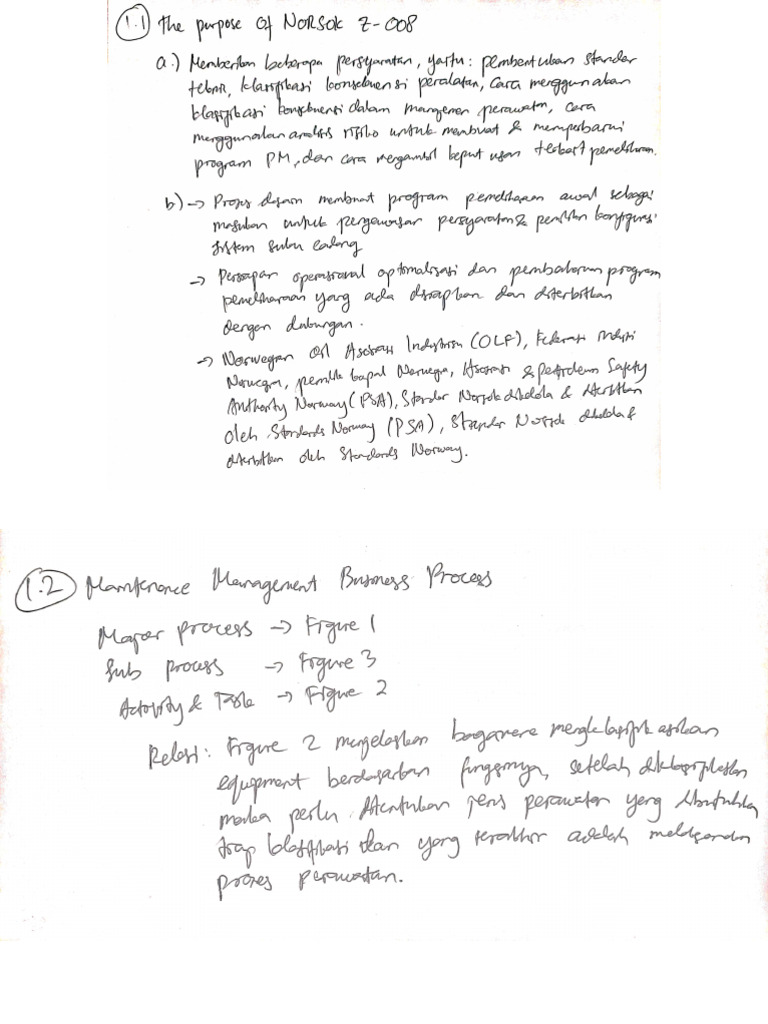 1.1 The purpose of NORSOK Z-008
a.) Memberikan beberapa persyaratan, yaitu: pembentukan standar
teknis, klasifikasi konsekuensi peralatan, cara menggunakan
klasifikasi konsekuensi dalam manajemen perawatan, cara
menggunakan analisis risiko untuk membuat & memperbarui
program PM, dan cara mengambil keputusan terkait pemeliharaan.
b) → Proses desain membuat program pemeliharaan awal sebagai
masukan untuk pengawasan persyaratan & pemilihan konfigurasi
sistem suku cadang
→ Persiapan operasional optimalisasi dan pembaharuan program
pemeliharaan yang ada disiapkan dan diterbitkan
dengan dukungan.
→ Norwegian Oil Asosiasi Industrin (OLF), Federasi Industri
Norwegia, pemilik kapal Norwegia, Asosiasi & Petroleum Safety
Authority Norway (PSA), Standar Norsok dikelola & diterbitkan
oleh Standards Norway (PSA), Standar Norsok dikelola &
diterbitkan oleh Standards Norway.
1.2 Maintenance Management Business Process
Major process → Figure 1
Sub process → Figure 3
Activity & Task → Figure 2
Relasi: Figure 2 menjelaskan bagaimana mengklasifikasikan
equipment berdasarkan fungsinya, setelah diklasifikasikan
maka perlu ditentukan jenis perawatan yang dibutuhkan
tiap klasifikasi dan yang terakhir adalah
proses perawatan.